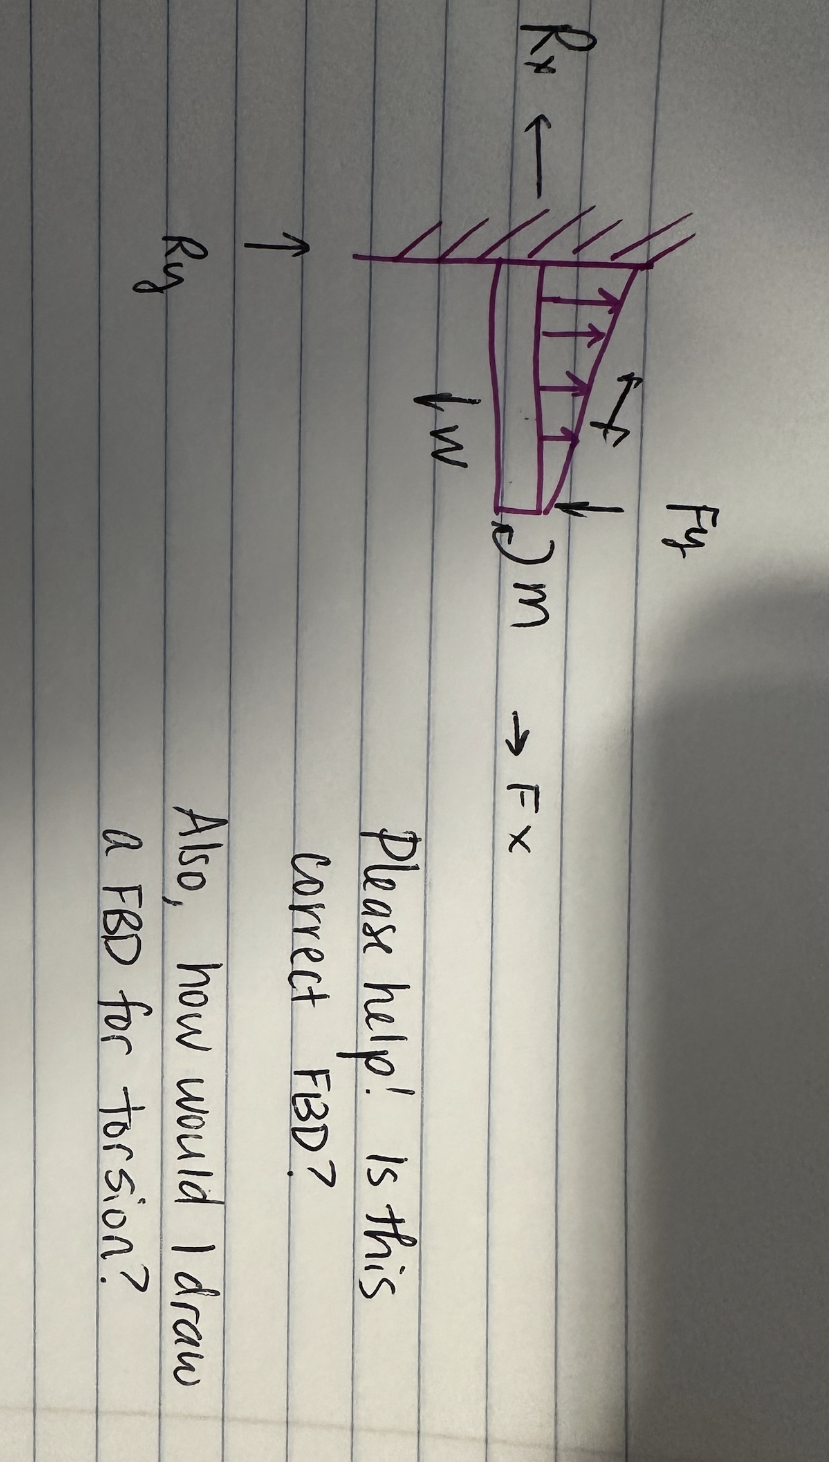 Fy
Rx
m
Fx
W
Ry
Please help! Is this
correct FBD?
Also, how would I draw
a FBD for torsion?